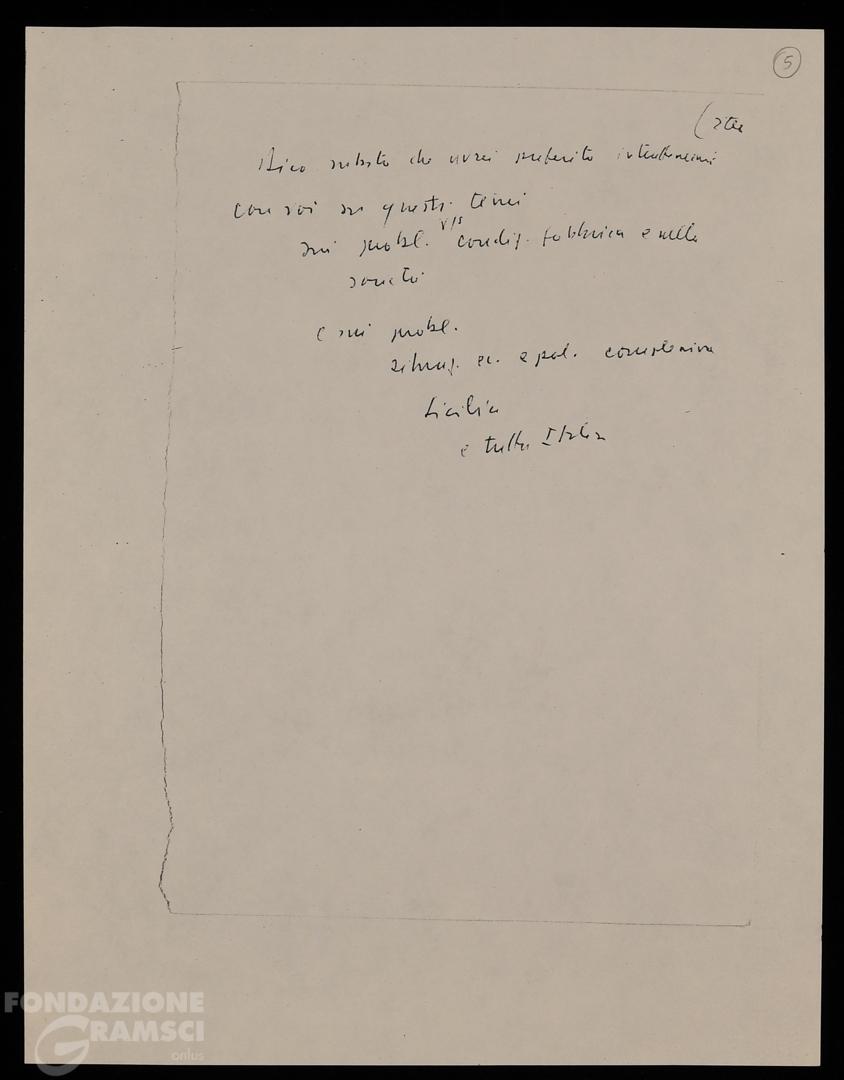 5
Dico subito che avrei preferito intrattenermi
con voi su questi temi
sui probl. condiz. fabbrica e nella
società
e sui probl.
situaz. ec. e pol. complessiva
Sicilia
e tutta Italia
FONDAZIONE
GRAMSCI
onlus